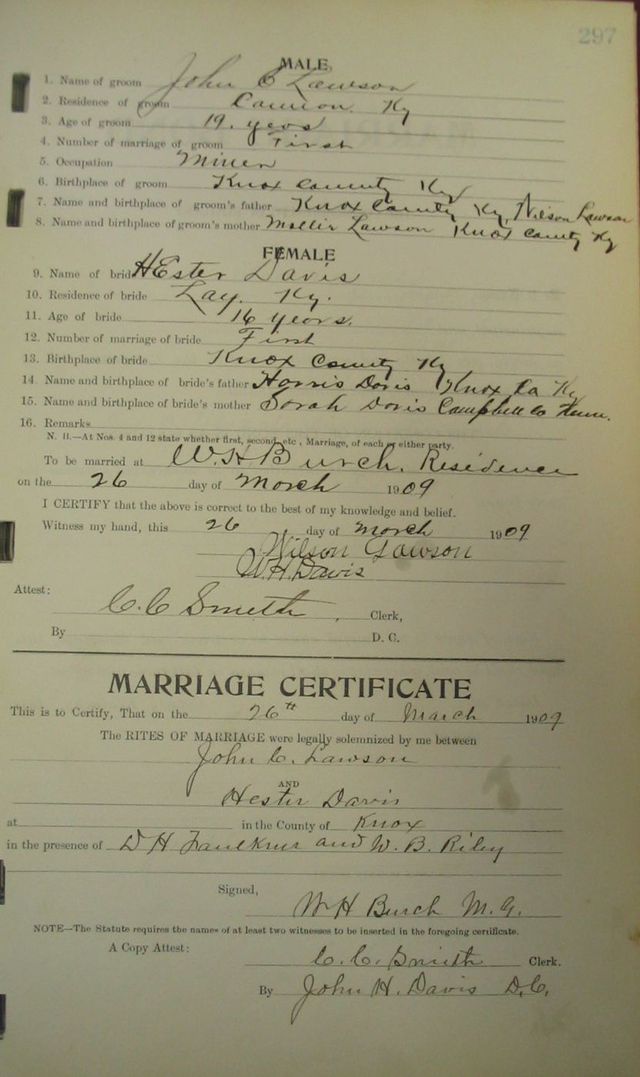 297
MALE
1. Name of groom John C Lawson
2. Residence of groom Cannon Ky
3. Age of groom 19. years
4. Number of marriage of groom First
5. Occupation Miner
6. Birthplace of groom Knox County Ky
7. Name and birthplace of groom's father Knox County Ky, Wilson Lawson
8. Name and birthplace of groom's mother Mollie Lawson Knox County Ky
FEMALE
9. Name of bride HEster Davis
10. Residence of bride Lay. Ky.
11. Age of bride 16 years.
12. Number of marriage of bride First
13. Birthplace of bride Knox County Ky
14. Name and birthplace of bride's father Harris Davis Knox Co Ky
15. Name and birthplace of bride's mother Sarah Davis Campbell Co Tenn.
16. Remarks
N. B.—At Nos. 4 and 12 state whether first, second, etc., Marriage, of each or either party.
To be married at W.H Burch. Residence
on the 26 day of March 1909
I CERTIFY that the above is correct to the best of my knowledge and belief.
Witness my hand, this 26 day of March 1909
Wilson Lawson
W.H. Davis
Attest:
C. C Smith, Clerk,
By D. C.
MARRIAGE CERTIFICATE
This is to Certify, That on the 26th day of March 1909
The RITES OF MARRIAGE were legally solemnized by me between
John C. Lawson
AND
Hester Davis
at in the County of Knox
in the presence of D H Faulkner and W. B. Riley
Signed,
W H Burch M. G.
NOTE—The Statute requires the names of at least two witnesses to be inserted in the foregoing certificate.
A Copy Attest:
C. C. Smith Clerk.
By John H. Davis D.C.